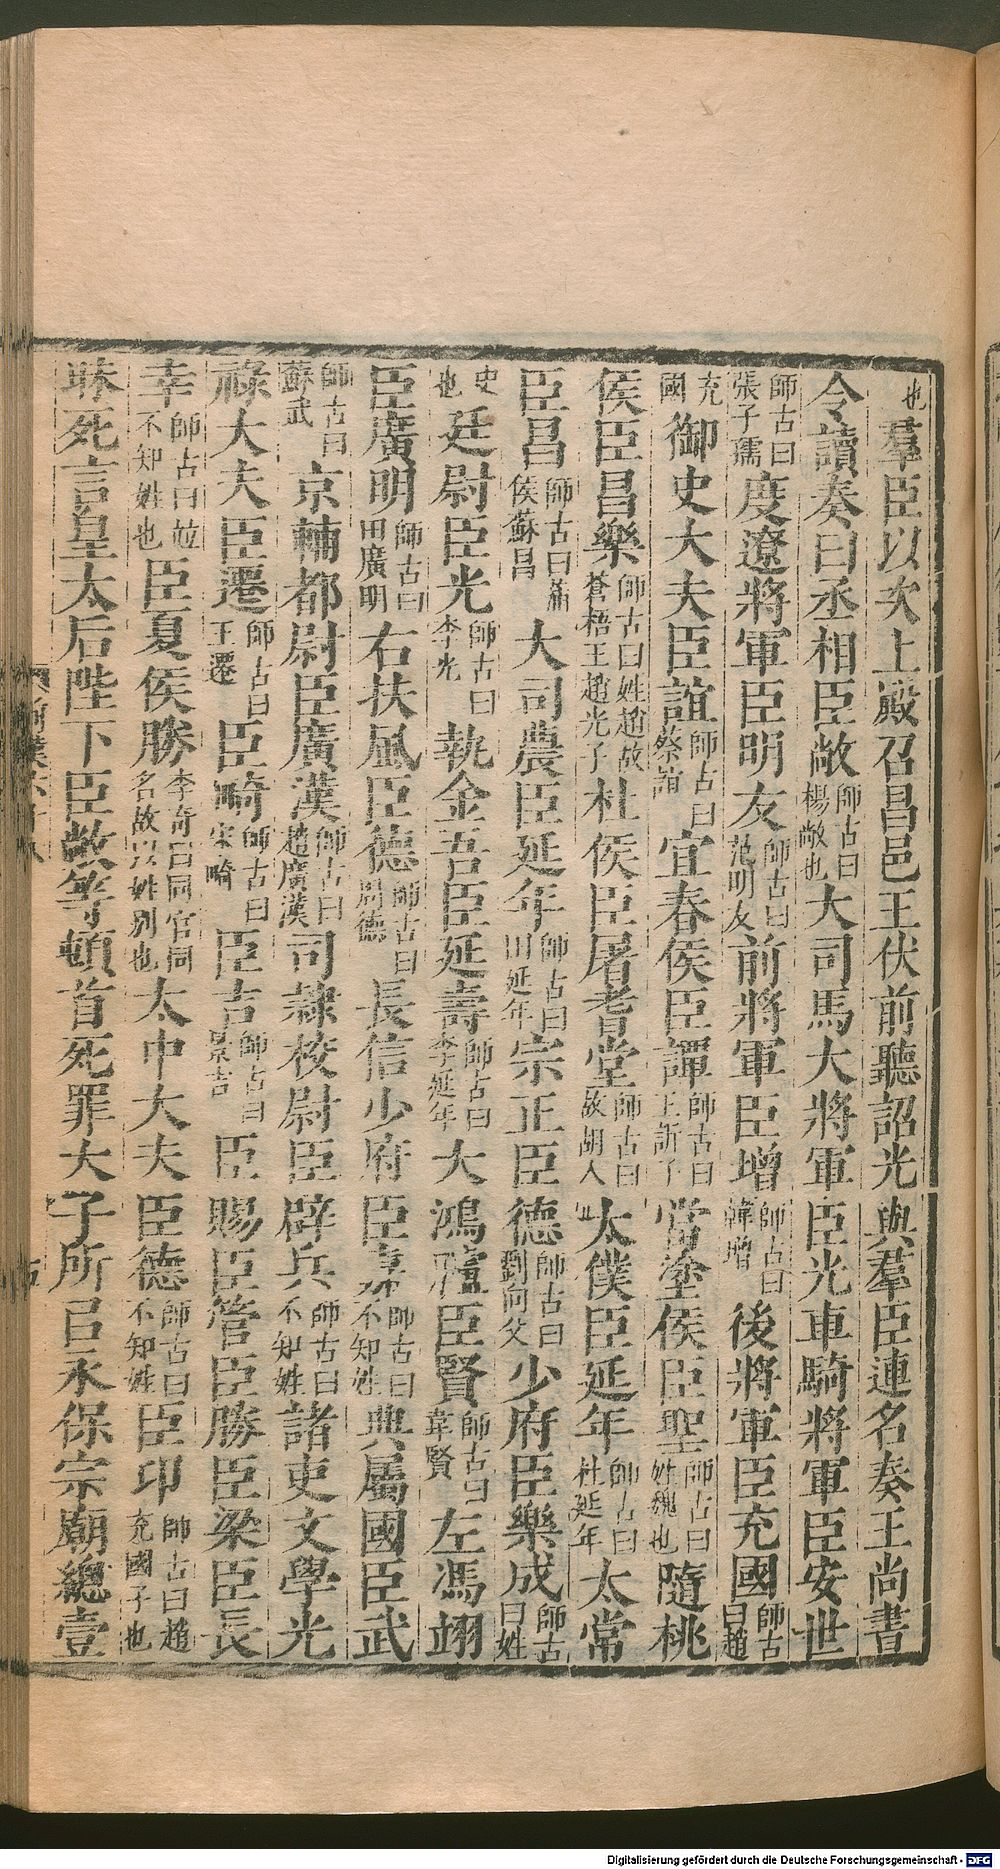 也羣臣以次上殿召昌邑王伏前聽詔光與羣臣連名奏王尚書
令讀奏曰丞相臣敞師古曰楊敞也大司馬大將軍臣光車騎將軍臣安世
師古曰張子孺度遼將軍臣明友師古曰范明友前將軍臣增師古曰韓增後將軍臣充國師古曰趙
充國御史大夫臣誼師古曰蔡誼宜春侯臣譚師古曰王訢子當塗侯臣聖師古曰姓魏也隨桃
侯臣昌樂師古曰姓趙故蒼梧王趙光子杜侯臣屠耆堂師古曰故胡人太僕臣延年師古曰杜延年太常
臣昌師古曰蒲侯蘇昌大司農臣延年師古曰田延年宗正臣德師古曰劉向父少府臣樂成師古曰姓
史也廷尉臣光師古曰李光執金吾臣延壽師古曰李延年大鴻臚臣賢師古曰韋賢左馮翊
臣廣明師古曰田廣明右扶風臣德師古曰周德長信少府臣嘉師古曰不知姓典屬國臣武
師古曰蘇武京輔都尉臣廣漢師古曰趙廣漢司隷校尉臣辟兵師古曰不知姓諸吏文學光
祿大夫臣遷師古曰王遷臣畸師古曰宋畸臣吉師古曰景吉臣賜臣管臣勝臣梁臣長
幸師古曰竝不知姓也臣夏侯勝李奇曰同官同名故以姓別也太中大夫臣德師古曰不知姓臣卬師古曰趙充國子也
昧死言皇太后陛下臣敞等頓首死罪天子所㠯永保宗廟總壹